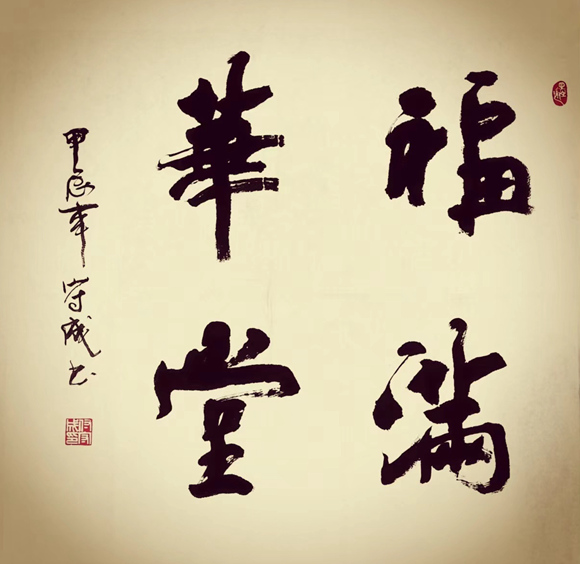 福滿
華堂
甲辰年守成书